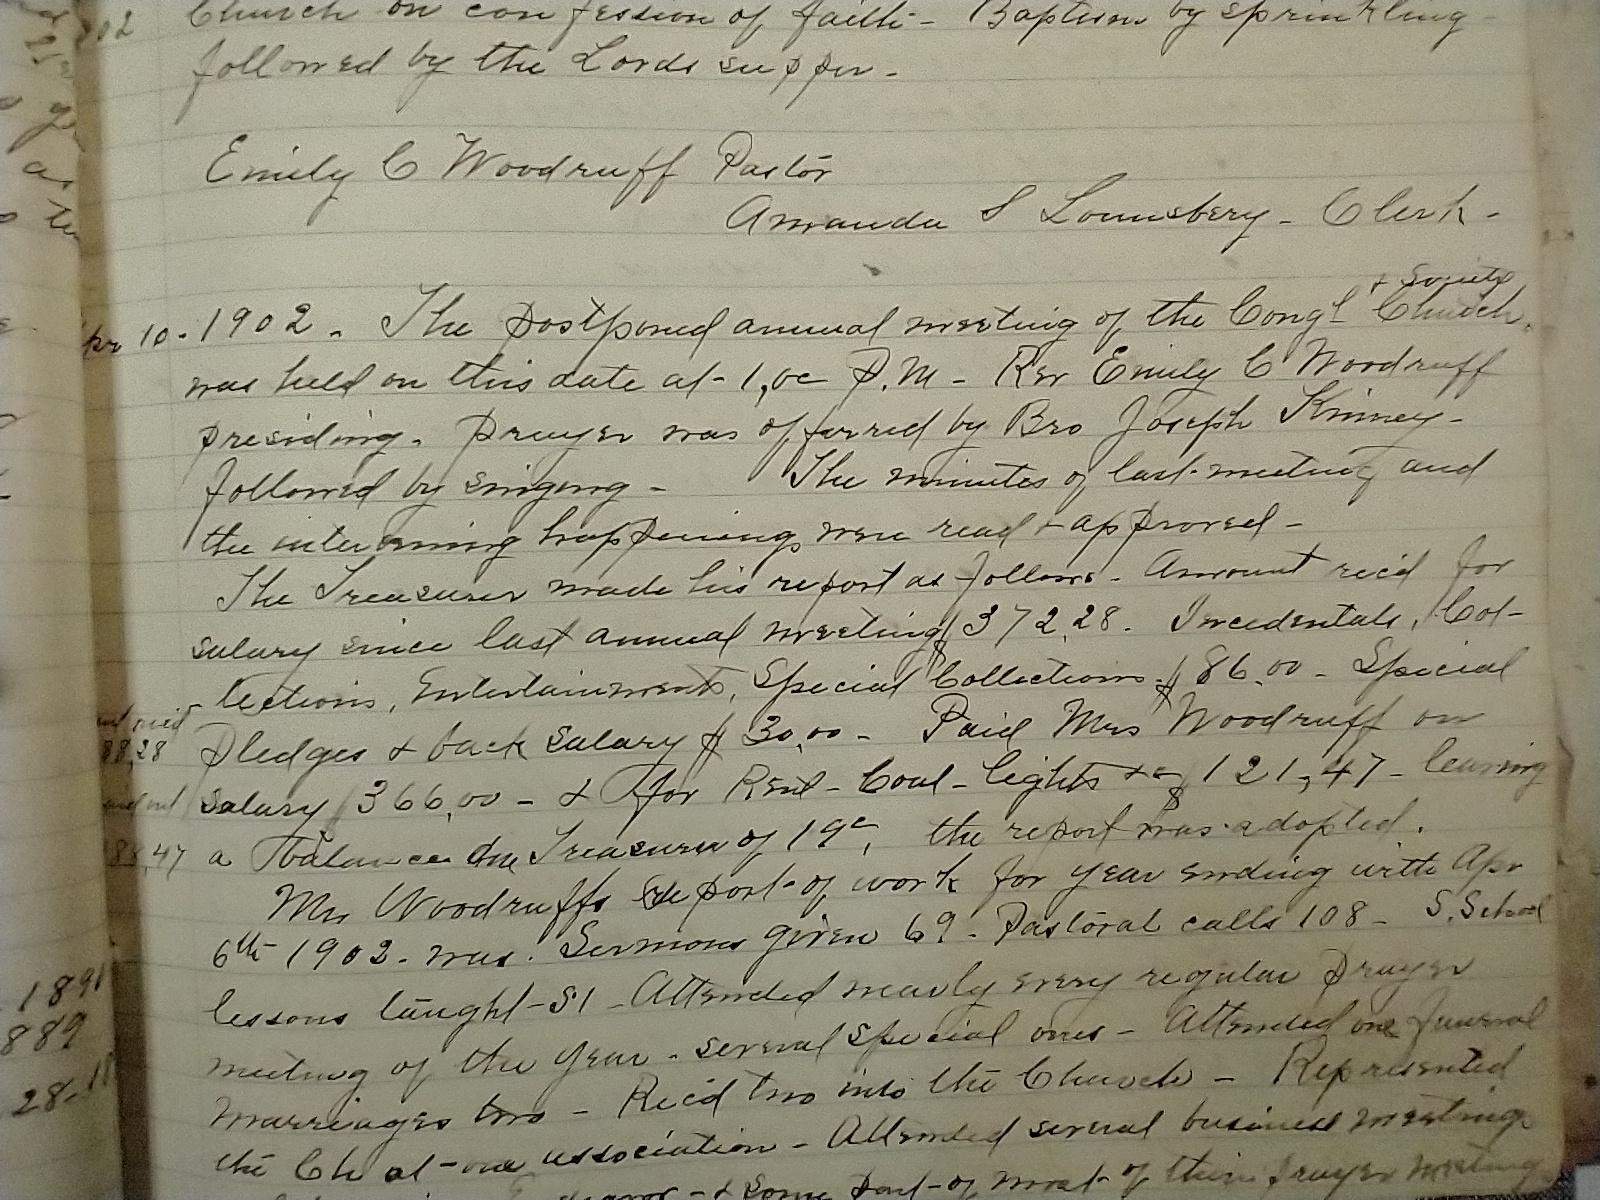 902 Church on confession of faith - Baptism by sprinkling -
followed by the Lords supper -
Emily C Woodruff Pastor
Amanda S Lounsbery - Clerk -
+ Society
Apr 10 - 1902 - The postponed annual meeting of the Congl Church,
was held on this date at - 1,00 P.M - Rev Emily C Woodruff
presiding. prayer was offerred by Bro Joseph Kinney -
followed by singing - The minutes of last meeting and
the intervening happenings were read + approved -
The Treasurer made his report as follows - Amount rec'd for
salary since last annual meeting $372,28. Incedentals, Col-
lections, Entertainments, Special Collections $86,00 - Special
Pledges + back salary $30,00 - Paid Mrs Woodruff on
rec'd
88,28
salary $366,00 - + for Rent - Coal - lights +c $121,47 - leaving
a balance due Treasurer of 19c, the report was adopted.
88,47
Mrs Woodruffs report of work for year ending with Apr
6th 1902 - was. Sermons given 69 - Pastoral calls 108 - S. School
lessons taught - 51 - Attended nearly every regular prayer
meeting of the year - several special ones - Attended one funeral
marriages two - Rec'd two into the Church - Represented
the Ch at - one association - Attended several business meetings
+ some part - of most - of their prayer meeting
1891
889
28-18